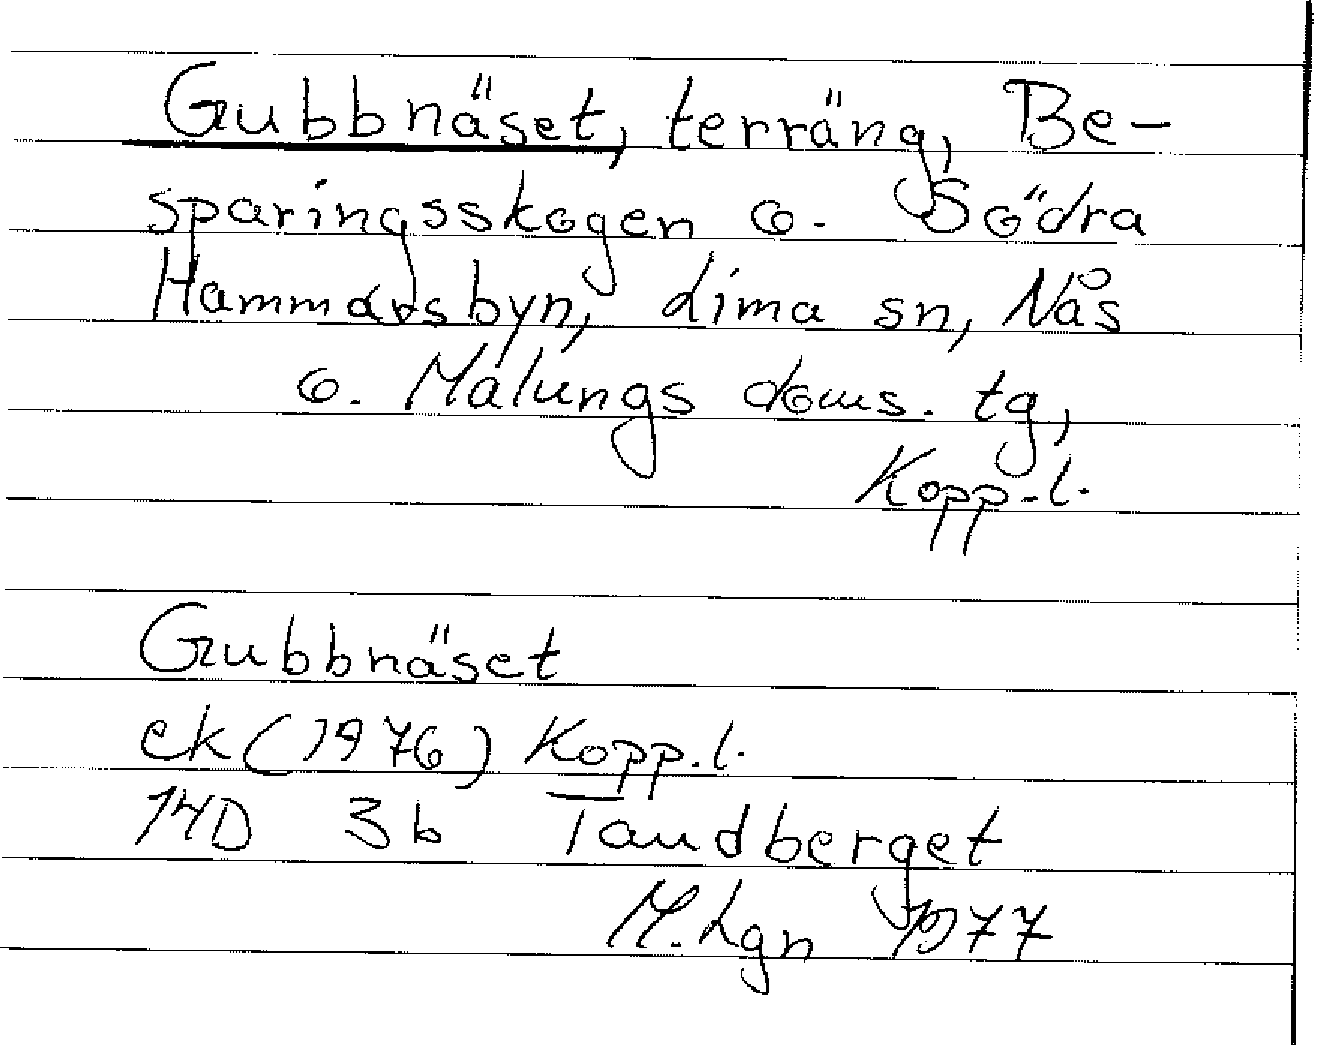 Gubbnäset, terräng, Be-
sparingsskogen o. Södra
Hammarsbyn, Lima sn, Nås
o. Malungs doms. tg,
Kopp.l.
Gubbnäset
ek (1976) Kopp.l.
14D 3b Tandberget
M.Lgn 1977